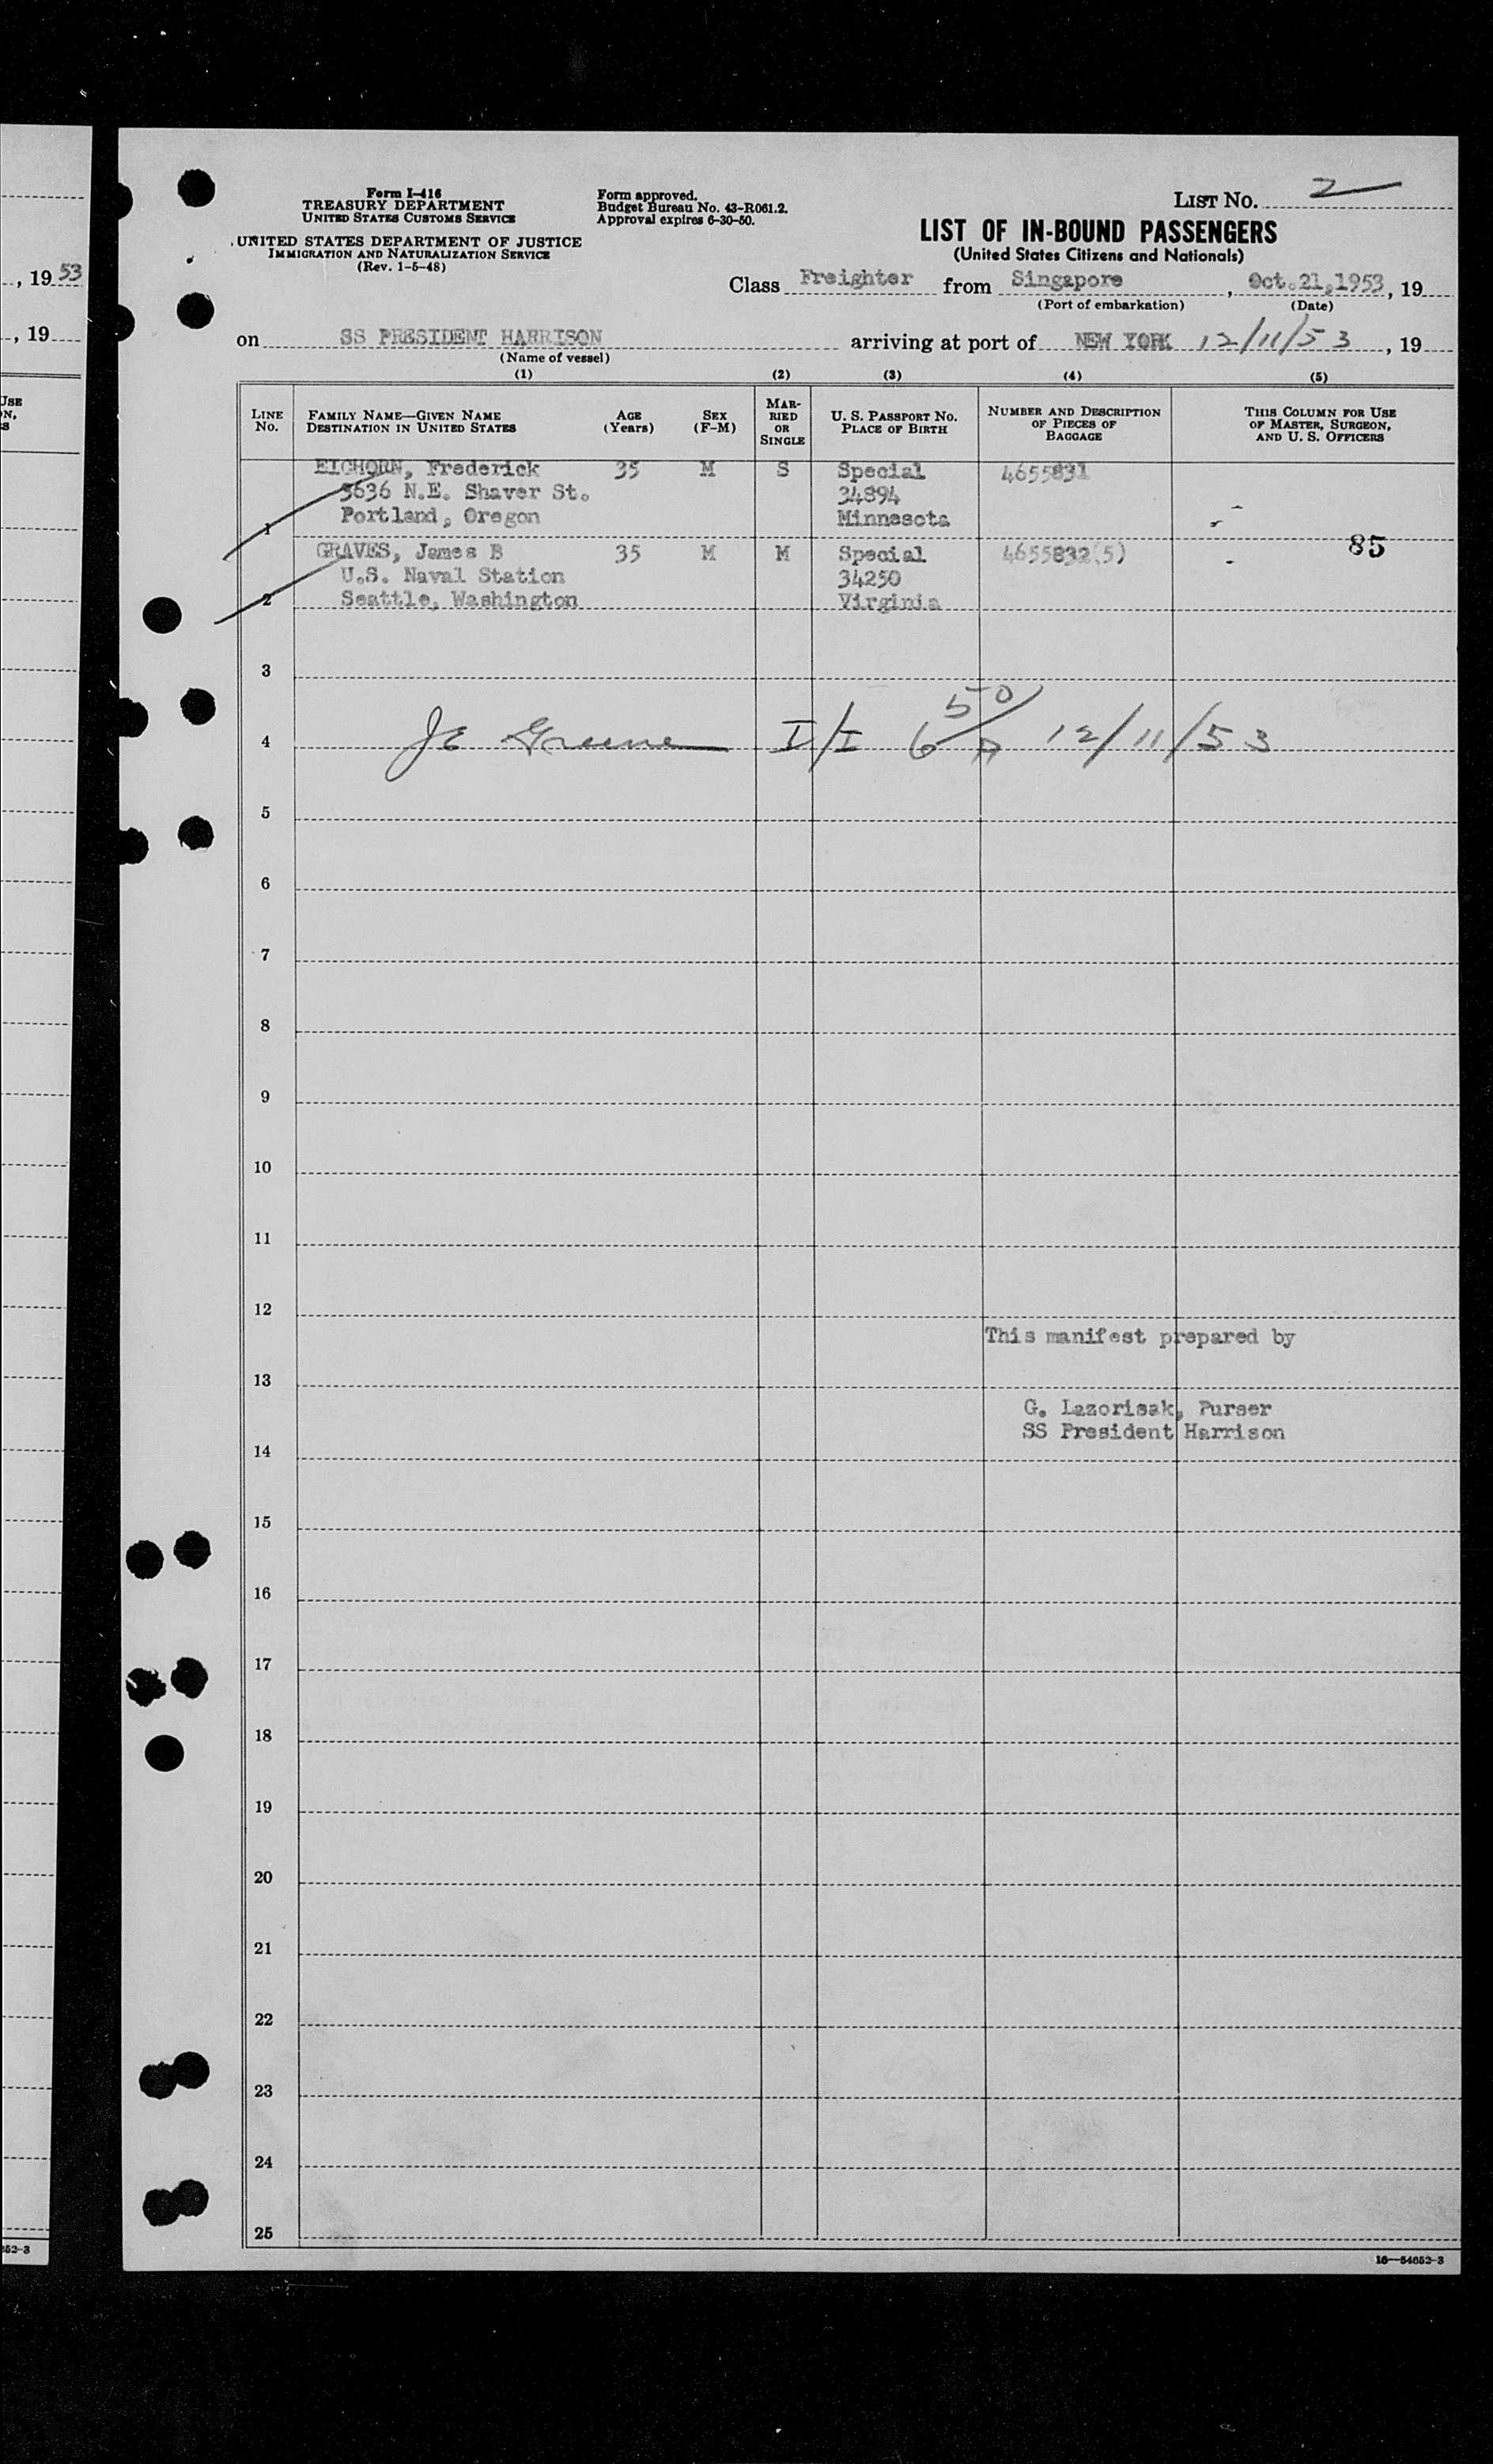 , 19 53
, 19
USE
N,
S
652-3
Form I-416
TREASURY DEPARTMENT
UNITED STATES CUSTOMS SERVICE
UNITED STATES DEPARTMENT OF JUSTICE
IMMIGRATION AND NATURALIZATION SERVICE
(Rev. 1-5-48)
Form approved.
Budget Bureau No. 43-R061.2.
Approval expires 6-30-50.
LIST NO. 2
LIST OF IN-BOUND PASSENGERS
(United States Citizens and Nationals)
Class Freighter from Singapore , Oct. 21, 1953, 19
(Port of embarkation) (Date)
on SS PRESIDENT HARRISON arriving at port of NEW YORK 12/11/53, 19
(Name of vessel)
(1) (2) (3) (4) (5)
LINE No.
FAMILY NAME—GIVEN NAME
DESTINATION IN UNITED STATES
AGE
(Years)
SEX
(F-M)
MAR-
RIED
OR
SINGLE
U. S. PASSPORT NO.
PLACE OF BIRTH
NUMBER AND DESCRIPTION
OF PIECES OF
BAGGAGE
THIS COLUMN FOR USE
OF MASTER, SURGEON,
AND U. S. OFFICERS
EICHORN, Frederick 35 M S Special 4655831
3636 N.E. Shaver St. 34894
Portland, Oregon Minnesota
1
85
GRAVES, James B 35 M M Special 4655832(5)
U.S. Naval Station 34250
2 Seattle, Washington Virginia
3
4 JE Greene I/I 6 50/A 12/11/53
5
6
7
8
9
10
11
12
This manifest prepared by
13
G. Lazorisak, Purser
SS President Harrison
14
15
16
17
18
19
20
21
22
23
24
25
16—54652-3